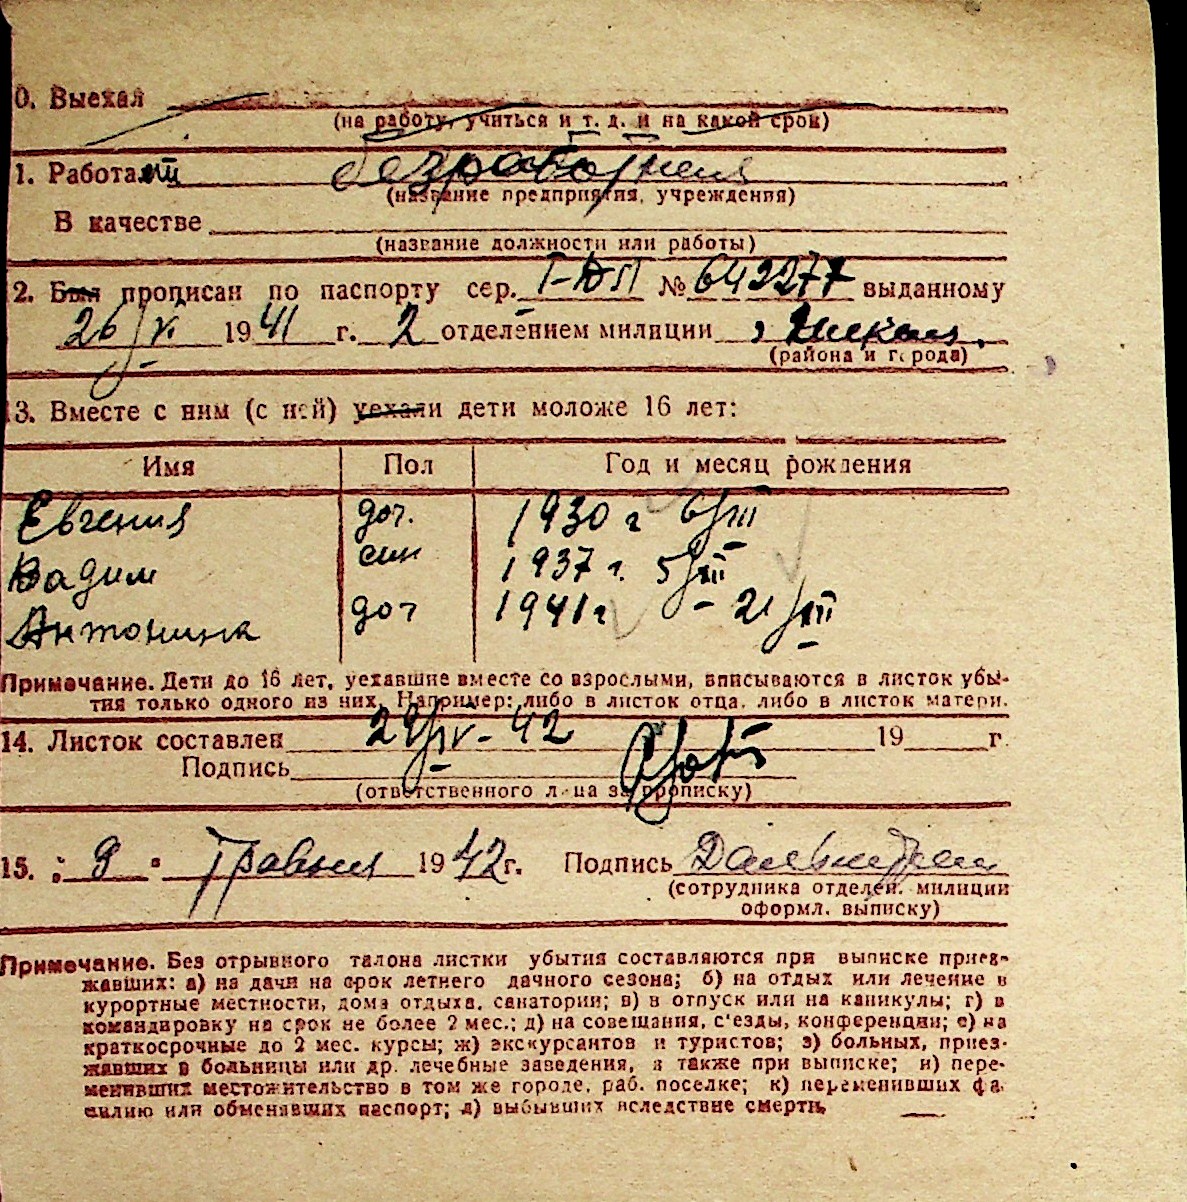 0. Выехал
(на работу, учиться и т. д. и на какой срок)
1. Работа
(название предприятия, учреждения)
В качестве
(название должности или работы)
2. Был прописан по паспорту сер. I-ДП № 642277 выданному
26/V 1941 г. 2 отделением милиции
(района и города)
13. Вместе с ним (с ней) уехали дети моложе 16 лет:
Имя Пол Год и месяц рождения
Евгения доч. 1930 г 6/III
Вадим син 1937 г. 5/XII
Антонина доч 1941 г - 21/III
Примечание. Дети до 16 лет, уехавшие вместе со взрослыми, вписываются в листок убы-
тия только одного из них. Например: либо в листок отца, либо в листок матери.
14. Листок составлен 29/IV-42 19 г.
Подпись
(ответственного лица за прописку)
15. "9" Травня 1942 г. Подпись
(сотрудника отделен. милиции
оформл. выписку)
Примечание. Без отрывного талона листки убытия составляются при выписке приез-
жавших: а) на дачи на срок летнего дачного сезона; б) на отдых или лечение в
курортные местности, дома отдыха, санатории; в) в отпуск или на каникулы; г) в
командировку на срок не более 2 мес.; д) на совещания, с'езды, конференции; е) на
краткосрочные до 2 мес. курсы; ж) экскурсантов и туристов; з) больных, приез-
жавших в больницы или др. лечебные заведения, а также при выписке; и) пере-
менивших местожительство в том же городе, раб. поселке; к) переменивших фа-
милию или обменявших паспорт; л) выбывших вследствие смерти.